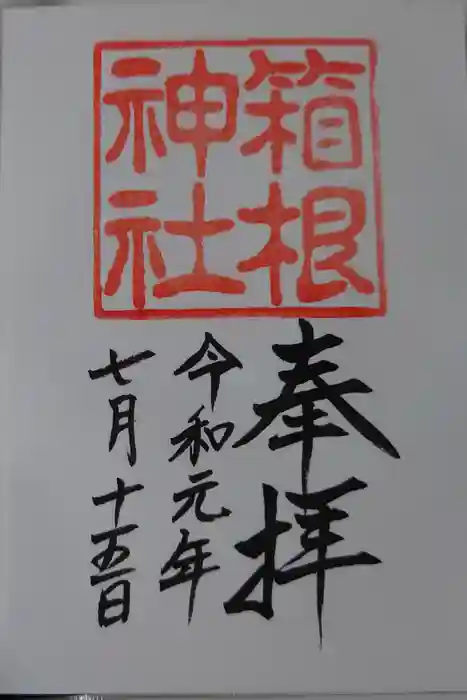 箱根
神社
奉拝
令和元年
七月十五日